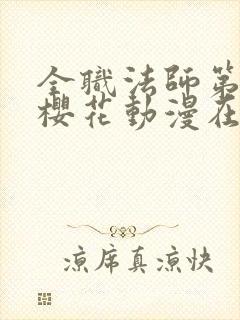 全職法師第
櫻花動漫在
涼席真涼快